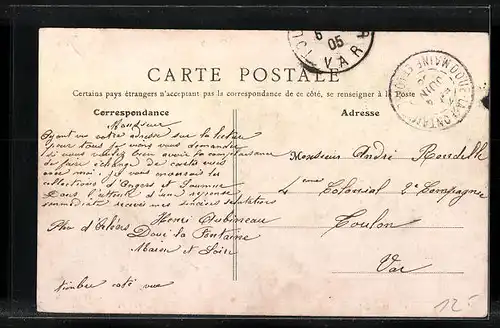 TOULON
6
05
VAR
DOUÉ-LA-FONTAINE
JUIN
05
CARTE POSTALE
Certains pays étrangers n'acceptant pas la correspondance de ce côté, se renseigner à la Poste
Correspondance
Adresse
Monsieur
Ayant vu votre adresse sur la lecture
pour tous je vous demander
si vous voulez bien avoir la complaisance
de faire échange de cartes vues
avec moi. je vous enverrais les
collections d'Angers et Saumur
Dans l'attente d'une réponse
immédiate recevez mes sincères salutations
Henri Aubineau
Doué la Fontaine
Maine et Loire
timbre coté vue
Monsieur André
4ème Colonial 2e Compagnie
Toulon
Var
12-